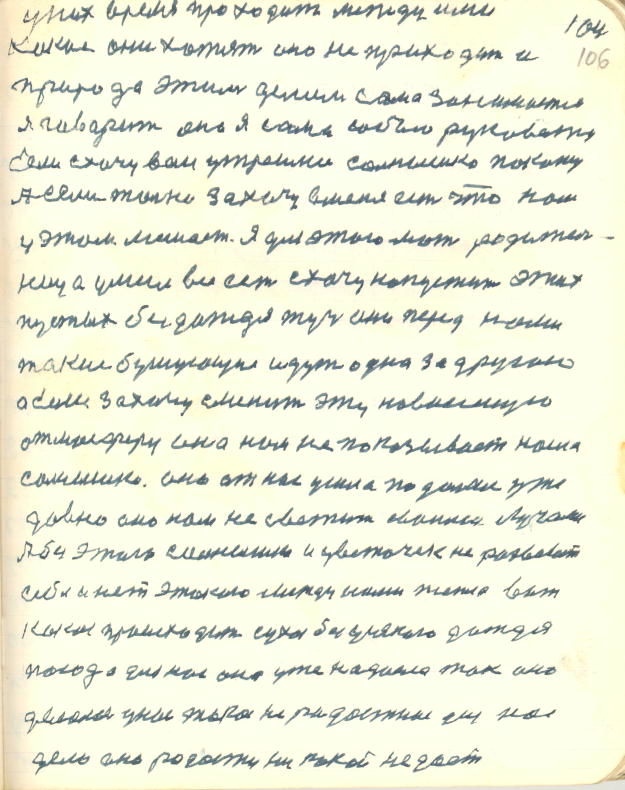 у них время проходит между ими
104
какое они хотят оно не приходит и
106
природа этим делом сама занимается
я говарит она я сама собою руковажу
если схочу вам утрешнее солнышко покажу
А если толко захочу в меня ест что нам
у этом мешает. Я для этого мат родител-
ница умею все ест схочу напустит этих
пустых без дождя туч они перед нами
такие бушующие идут одна за другою
а если захочу сменит эту нависшую
отмосферу она нам не показывает наша
солнышко. оно от нас ушла подалее уже
давно оно нам не светит своими лучами
А без этого солнышка и цветочек не развевает
себя и нет этакого между нами тепла вот
какое происходит суха без усякого дождя
погода для нас она уже надоела так оно
делается у нас такое не радостное для нас
дело оно радости ни покой не дает